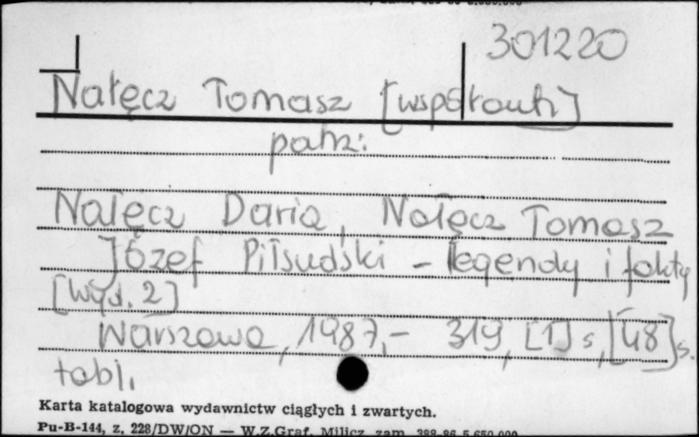 301220
Nałęcz Tomasz [współaut.]
patrz:
Nałęcz Daria, Nałęcz Tomasz
Józef Piłsudski - legendy i fakty
[Wyd. 2]
Warszawa, 1987,- 319, [1] s, [48] s.
tabl.
Karta katalogowa wydawnictw ciągłych i zwartych.
Pu-B-144, z. 228/DW/ON — W.Z.Graf. Milicz zam. 388-86 5.650.000